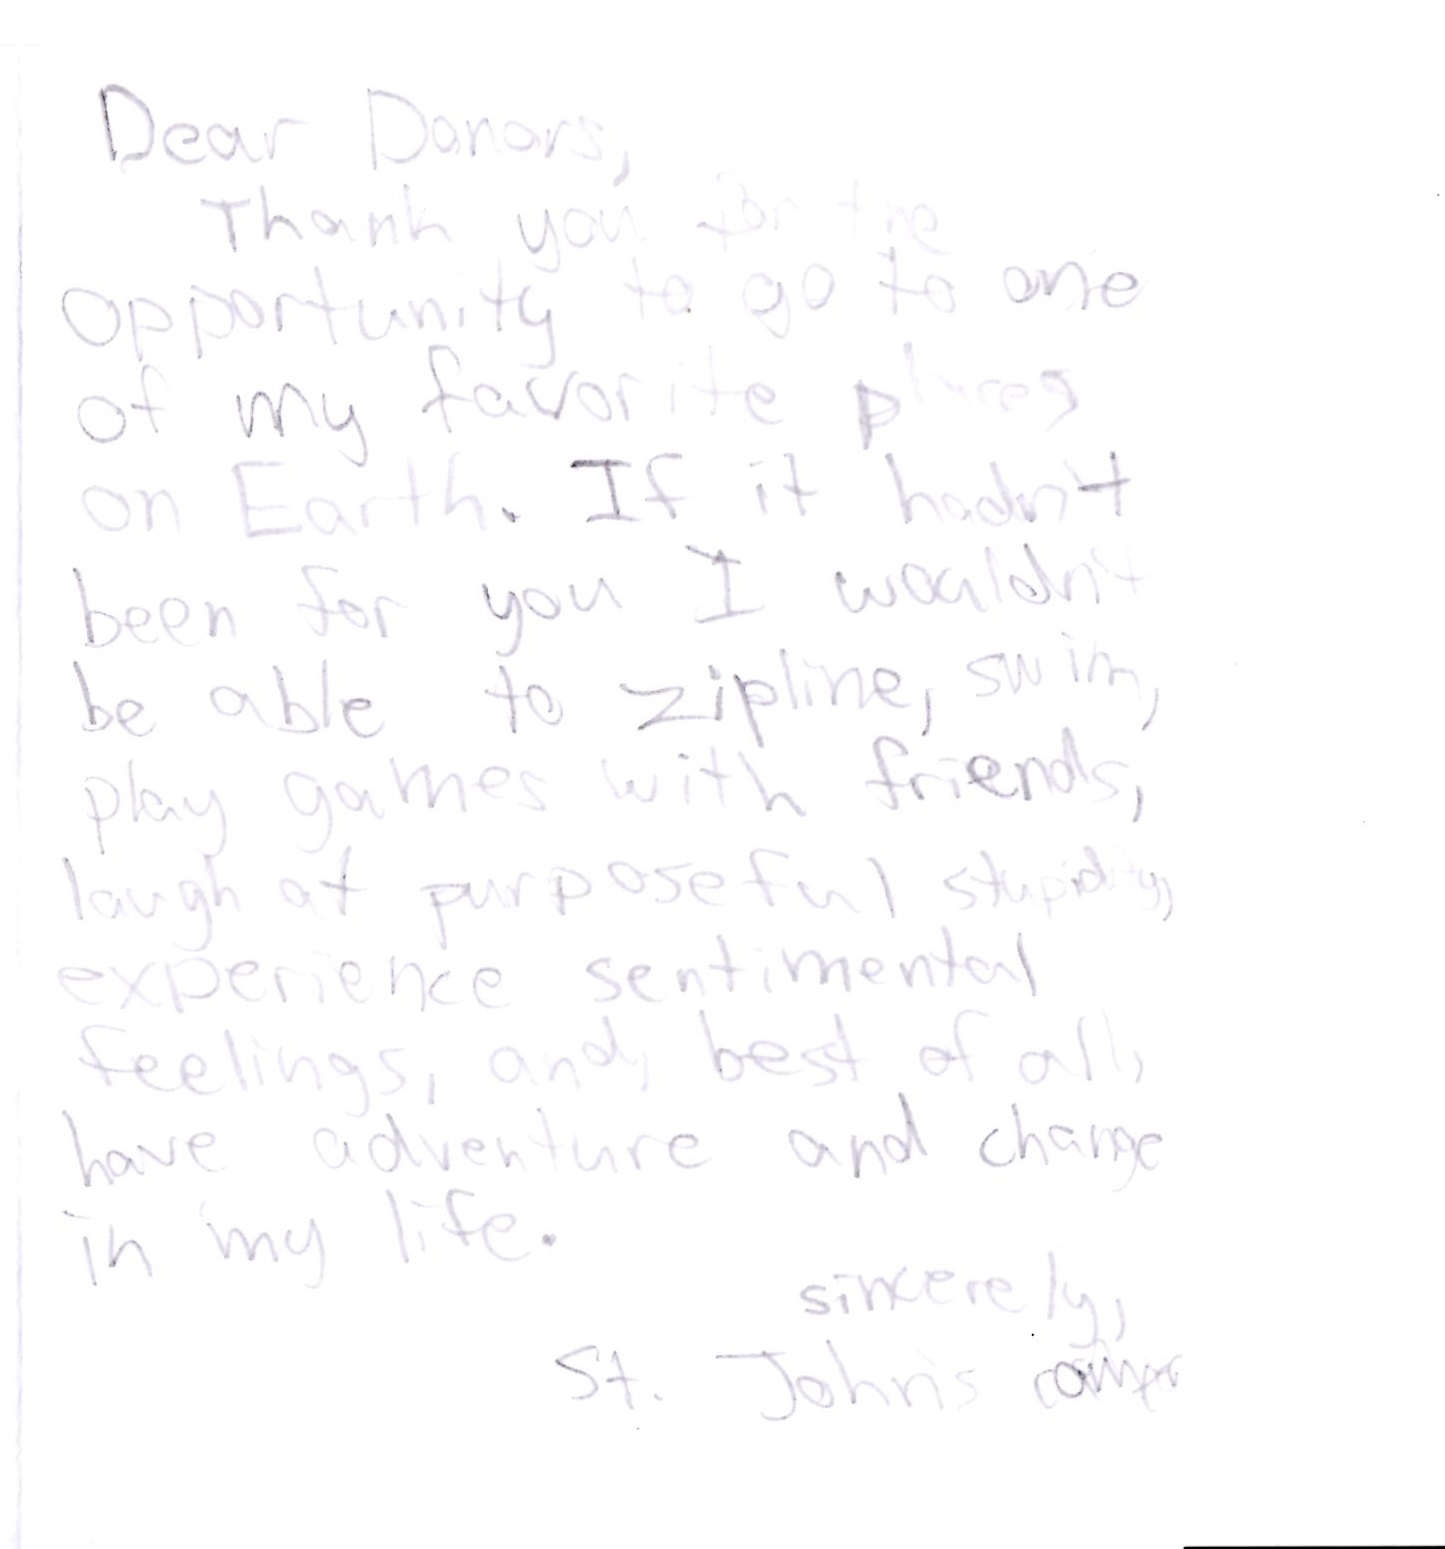 Dear Donors,
Thank you for the
opportunity to go to one
of my favorite places
on Earth. If it hadn't
been for you I wouldn't
be able to zipline, swim,
play games with friends,
laugh at purposeful stupidity,
experience sentimental
feelings, and, best of all,
have adventure and change
in my life.
sincerely,
St. John's camper